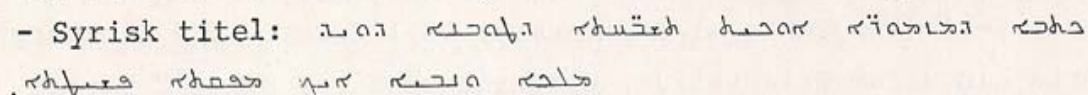 - Syrisk titel: ܟܬܒܐ ܕܡܙܡܘܪ̈ܐ ܐܘܟܝܬ ܬܫܒ̈ܚܬܐ ܕܛܘܒܢܐ ܕܘܝܕ
ܡܠܟܐ ܘܢܒܝܐ ܐܝܟ ܡܦܩܬܐ ܦܫܝܛܬܐ.